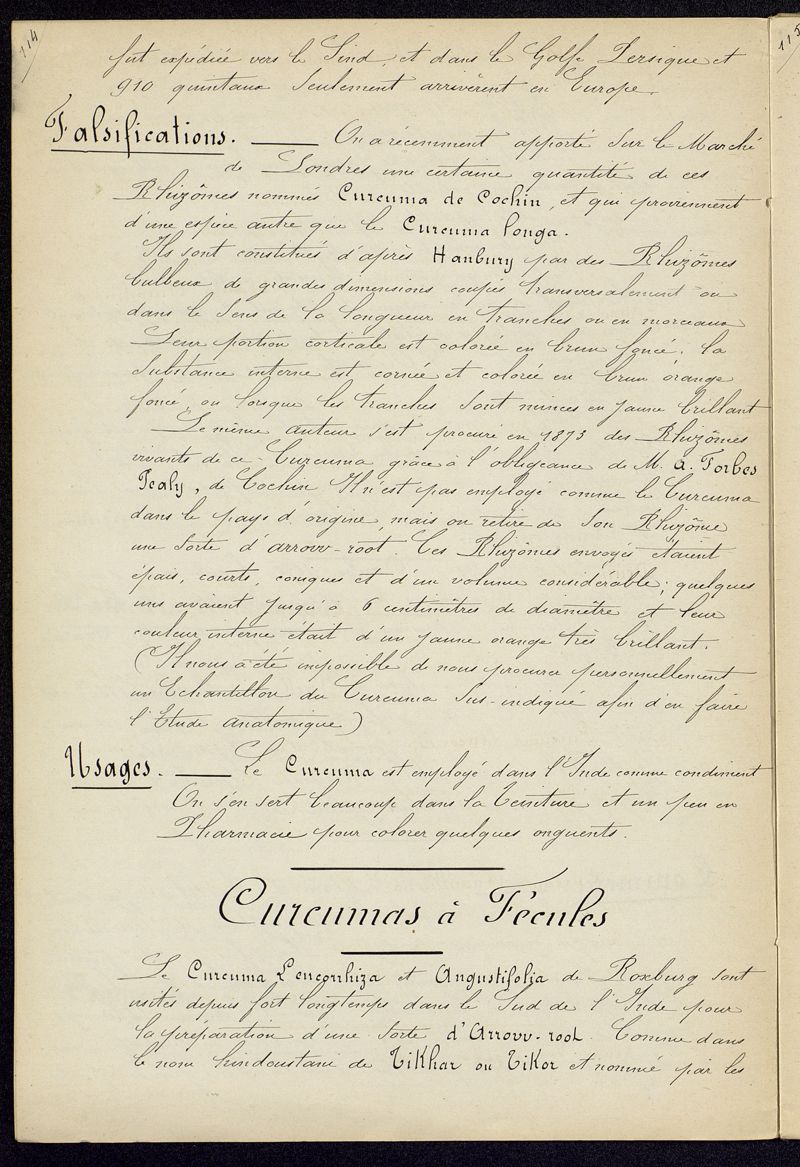 114
115
fut expédiée vers le Sind, et dans le Golfe Persique et
910 quintaux seulement arrivèrent en Europe.
Falsifications. — On a récemment apporté sur le Marché
de Londres une certaine quantité de ces
Rhizômes nommés Curcuma de Cochin, et qui proviennent
d'une espèce autre que le Curcuma longa.
Ils sont constitués d'après Hanbury par des Rhizômes
bulbeux de grandes dimensions coupés transversalement ou
dans le sens de la longueur en tranches ou en morceaux
Leur portion corticale est colorée en brun foncé; la
substance interne est cornée et colorée en brun orange
foncé, ou lorsque les tranches sont minces en jaune brillant
Le même auteur s'est procuré en 1873 des Rhizômes
vivants de ce Curcuma grâce à l'obligeance de M. A. Forbes
Pealy, de Cochin Il n'est pas employé comme le Curcuma
dans le pays d'origine, mais on retire de son Rhizôme
une sorte d'arrovv-root. Ces Rhizômes envoyés étaient
épais, courts, coniques et d'un volume considérable; quelques
uns avaient jusqu'à 6 centimètres de diamètre et leur
couleur interne était d'un jaune orange très brillant.
(Il nous a été impossible de nous procurer personnellement
un Echantillon du Curcuma sus-indiqué afin d'en faire
l'Etude anatomique)
Usages. — Le Curcuma est employé dans l'Inde comme condiment
On s'en sert beaucoup dans la Teinture et un peu en
Pharmacie pour colorer quelques onguents.
Curcumas à Fécules
Le Curcuma Leucorrhiza et Angustifolia de Roxburg sont
usités depuis fort longtemps dans le Sud de l'Inde pour
la préparation d'une sorte d'Arrovv-root. Comme dans
le nom hindoustani de Tikhar ou Tikor et nommé par les